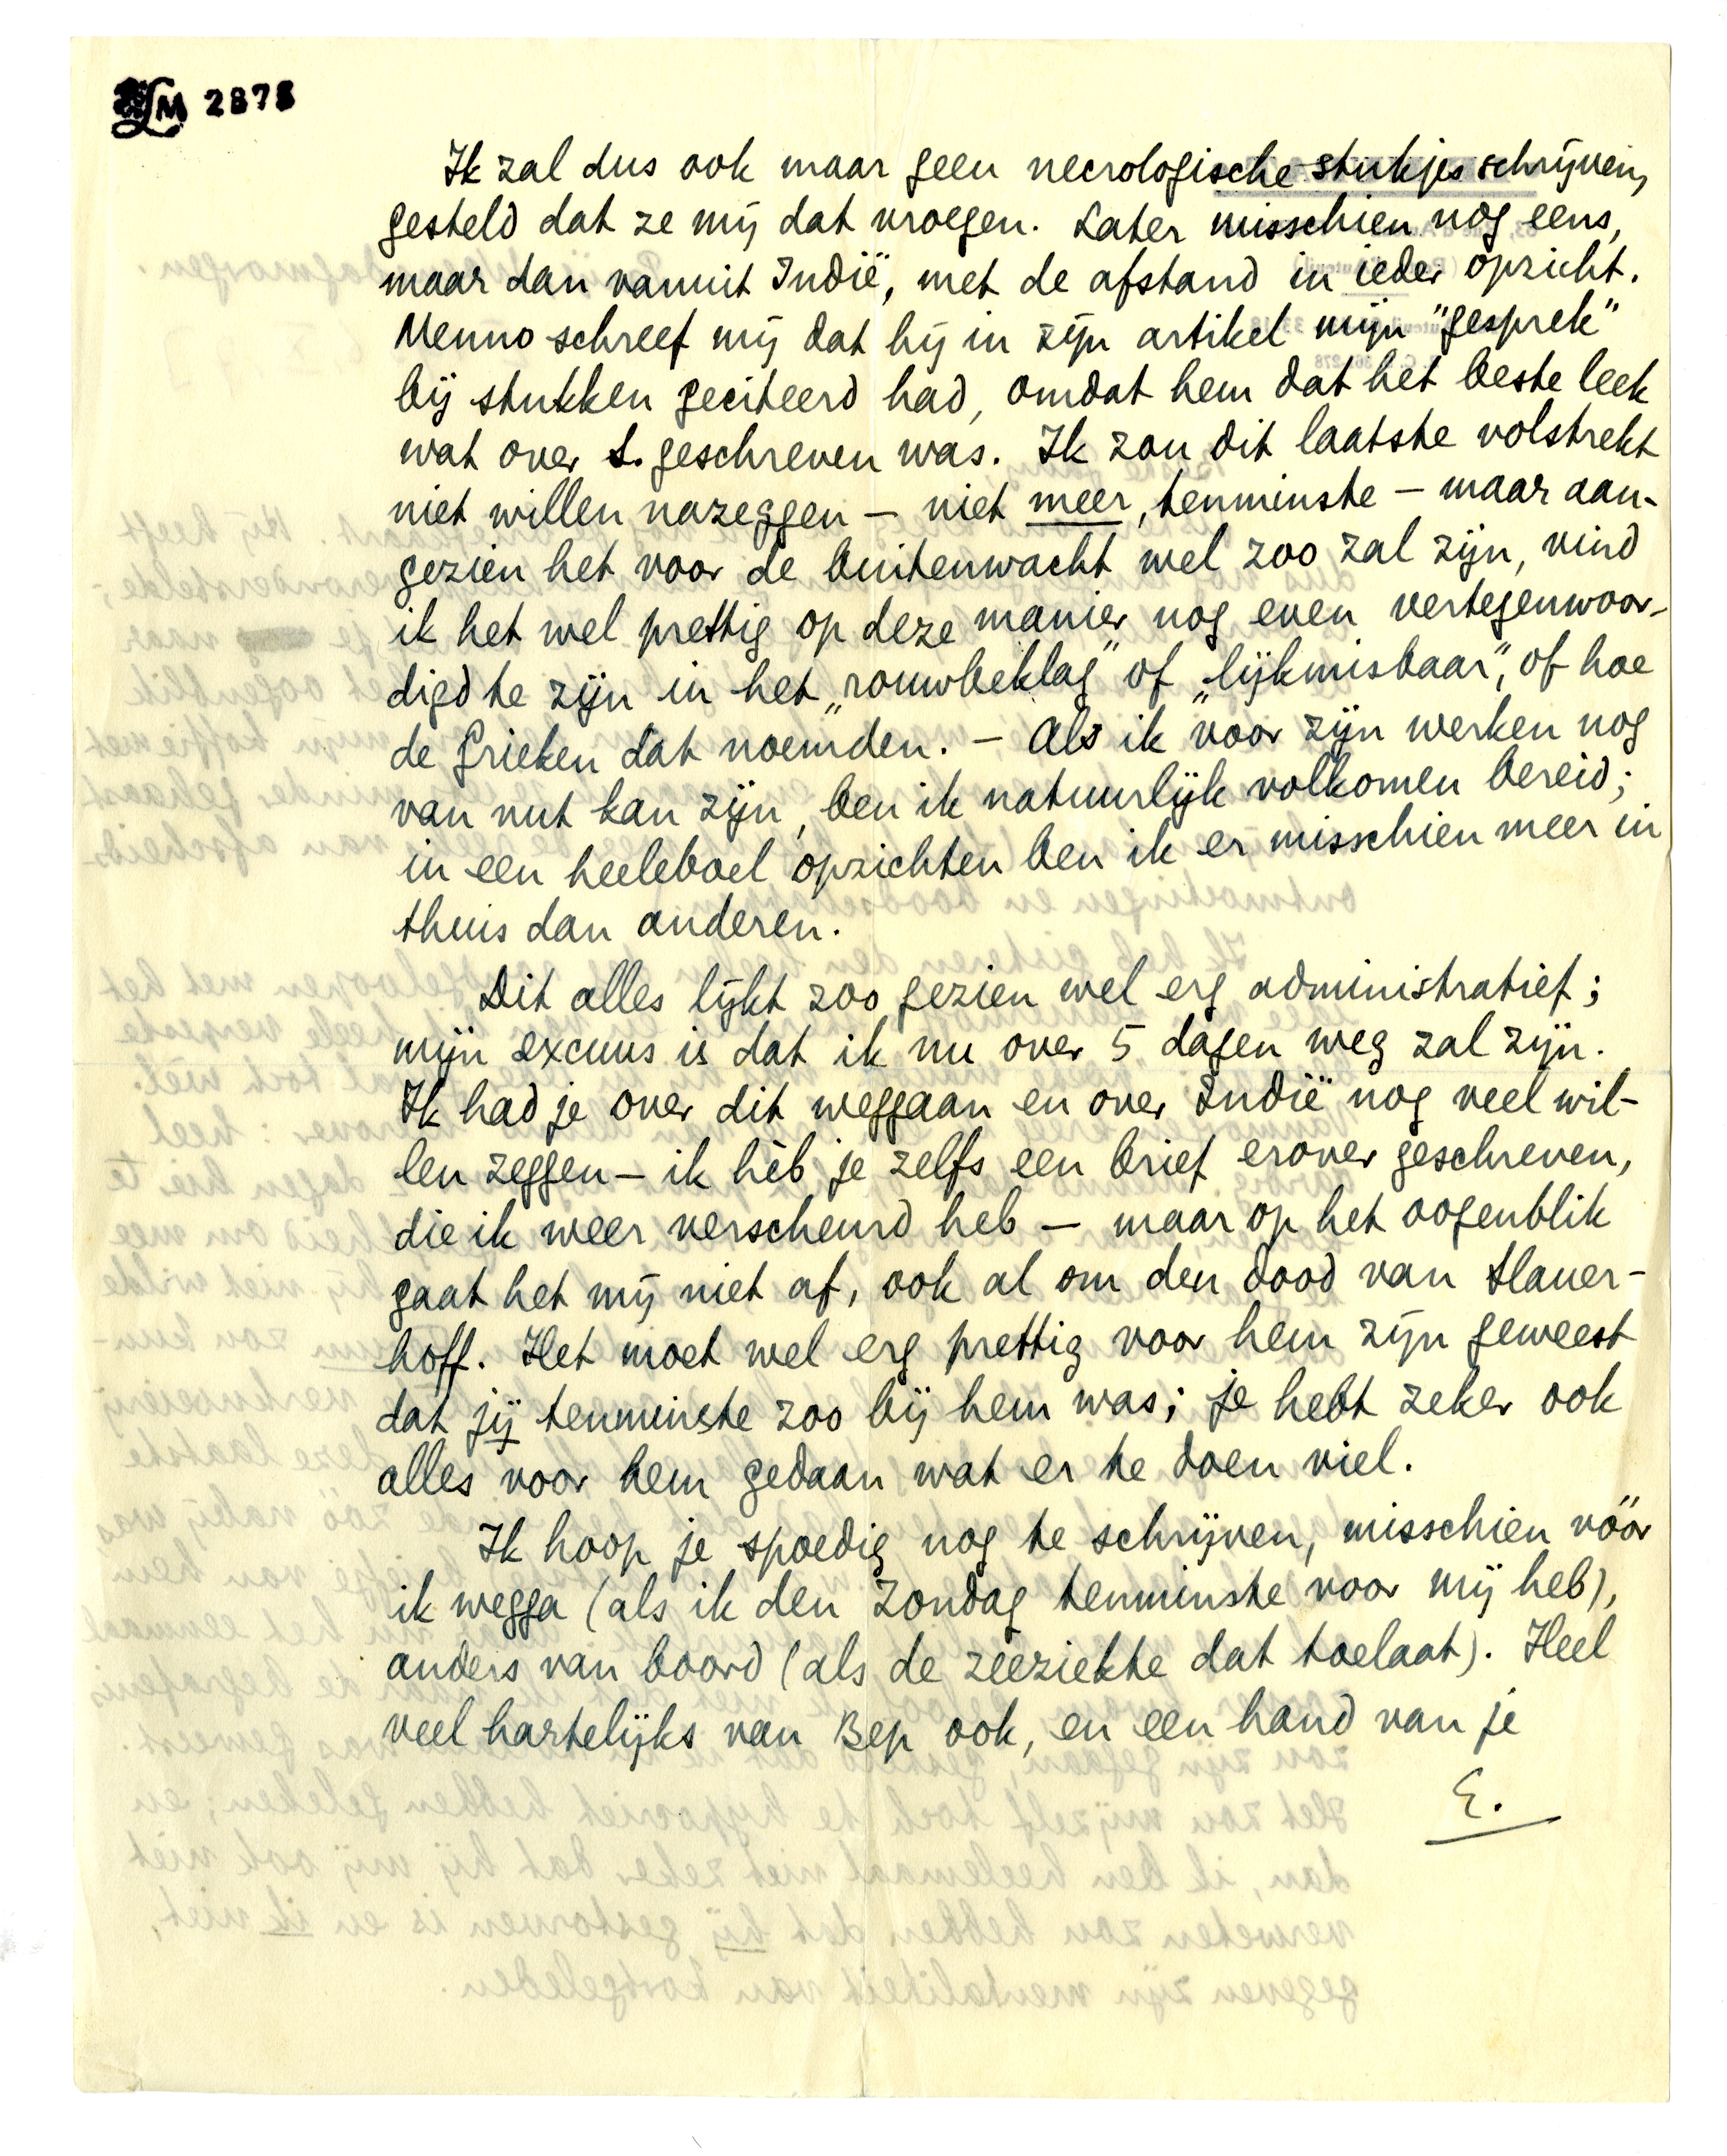 LM 2878
Ik zal dus ook maar geen necrologische stukjes schrijven,
gesteld dat ze mij dat vroegen. Later misschien nog eens,
maar dan vanuit Indië, met de afstand in ieder opzicht.
Menno schreef mij dat hij in zijn artikel mijn "gesprek"
bij stukken geciteerd had, omdat hem dat het beste leek
wat over S. geschreven was. Ik zou dit laatste volstrekt
niet willen nazeggen — niet meer, tenminste — maar aan-
gezien het voor de buitenwacht wel zoo zal zijn, vind
ik het wel prettig op deze manier nog even vertegenwoor-
digd te zijn in het „rouwbeklag" of „lijkmisbaar", of hoe
de Grieken dat noemden. — Als ik voor zijn werken nog
van nut kan zijn, ben ik natuurlijk volkomen bereid;
in een heeleboel opzichten ben ik er misschien meer in
thuis dan anderen.
Dit alles lijkt zoo gezien wel erg administratief;
mijn excuus is dat ik nu over 5 dagen weg zal zijn.
Ik had je over dit weggaan en over Indië nog veel wil-
len zeggen — ik hèb je zelfs een brief erover geschreven,
die ik weer verscheurd heb — maar op het oogenblik
gaat het mij niet af, ook al om den dood van Slauer-
hoff. Het moet wel erg prettig voor hem zijn geweest
dat jij tenminste zoo bij hem was; je hebt zeker ook
alles voor hem gedaan wat er te doen viel.
Ik hoop je spoedig nog te schrijven, misschien vóór
ik wegga (als ik den Zondag tenminste voor mij heb),
anders van boord (als de zeeziekte dat toelaat). Heel
veel hartelijks van Bep ook, en een hand van je
E.